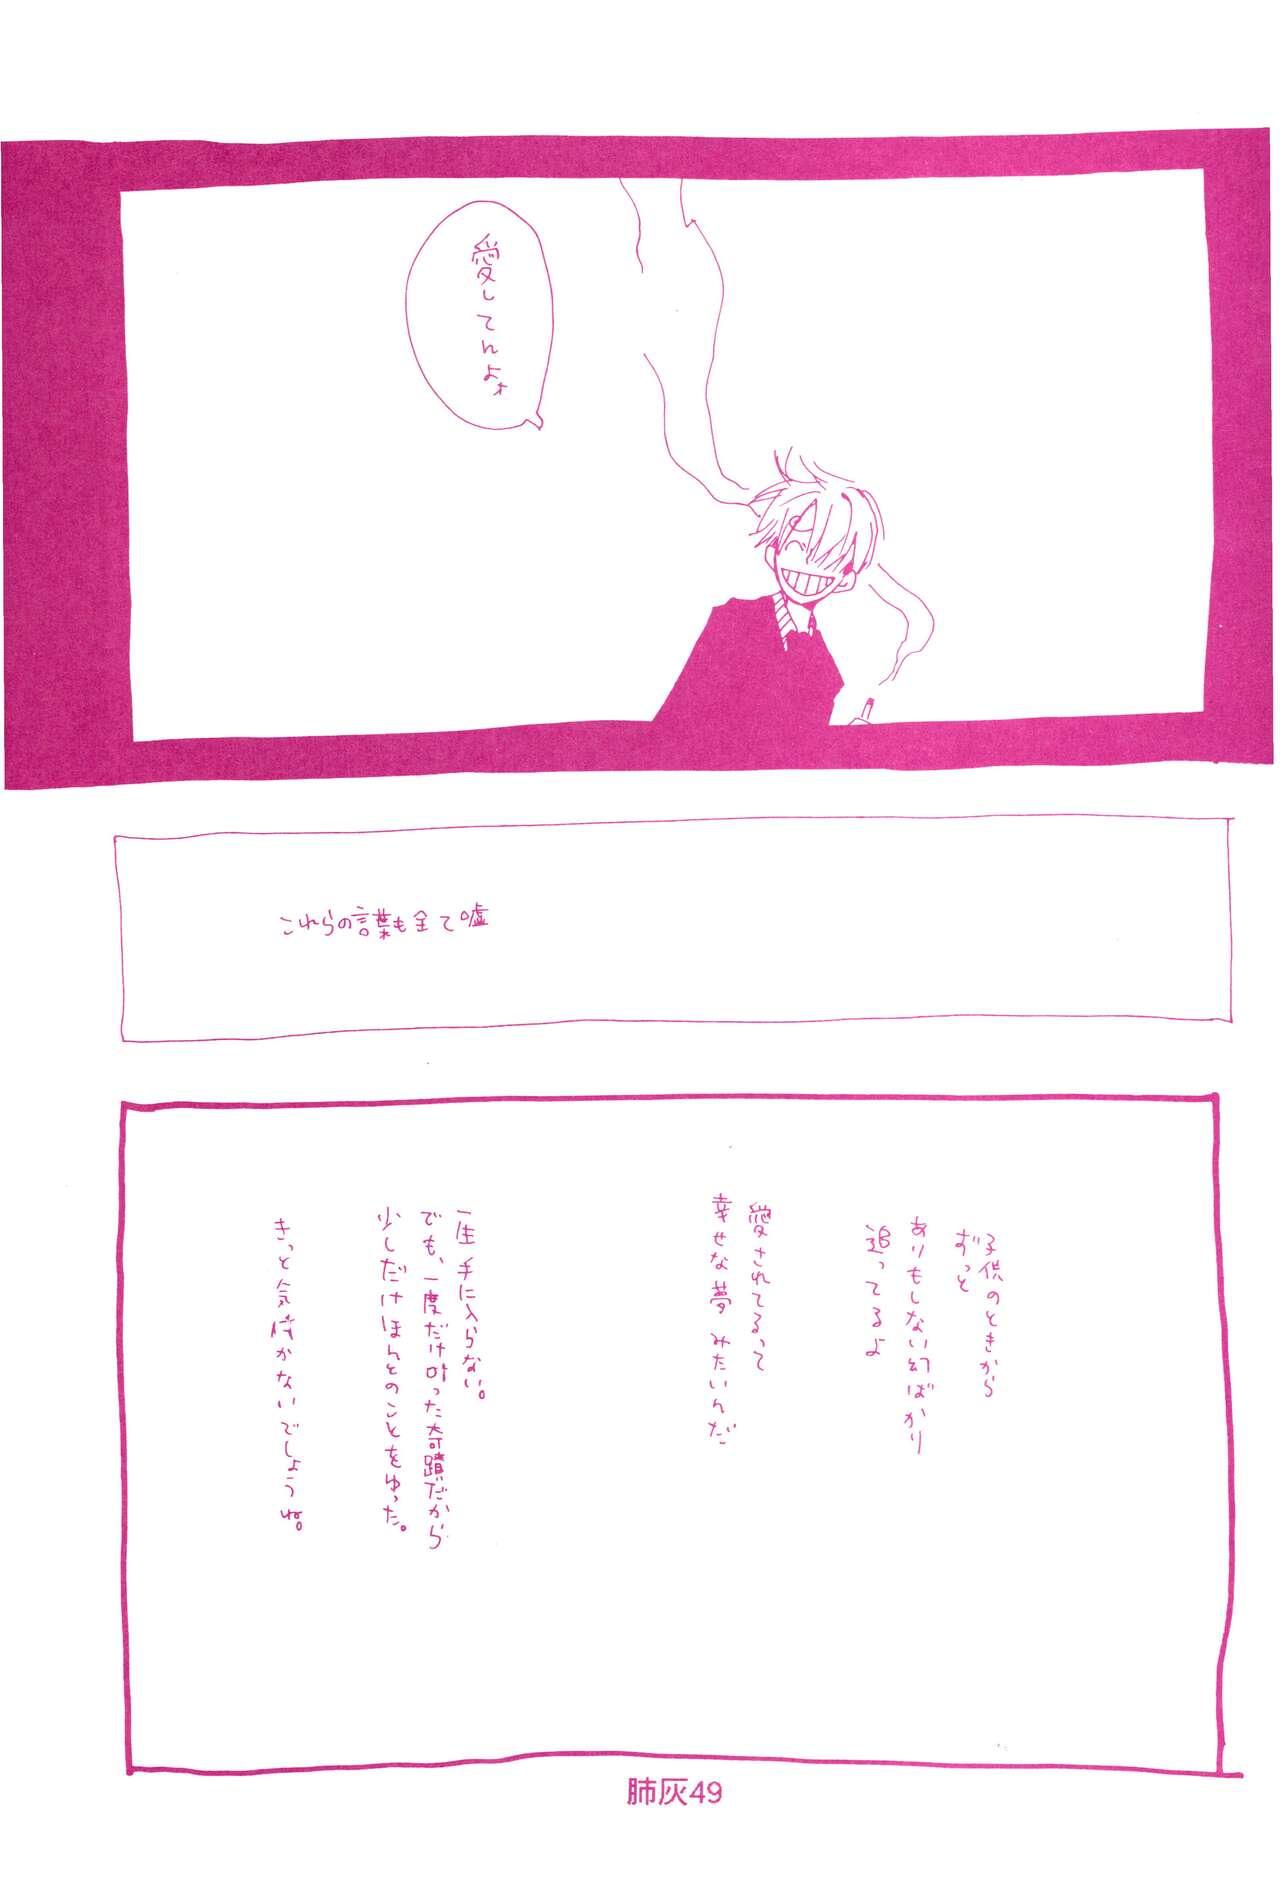 愛してんよォ
これらの言葉も全て嘘
子供のときから
ずっと
ありもしない幻ばかり
追ってるよ
愛されてるって
幸せな夢 みたいんだ
一生 手に入らない。
でも、一度だけ叶った奇蹟だから
少しだけほんとのことをゆった。
きっと気付かないでしょうね。
肺灰49